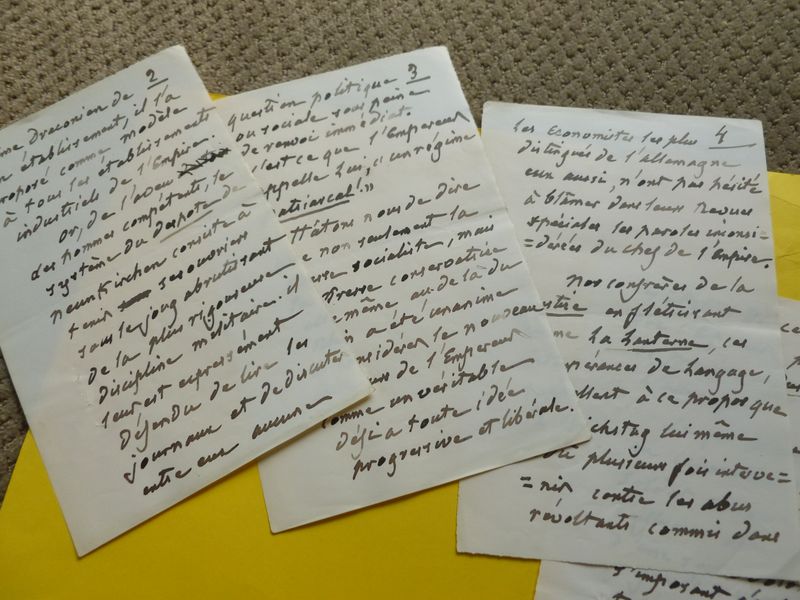 2
me Draconien de
établissement, il l'a
proposé comme modèle
à tous les établissements
industriels de l'Empire.
Or, de l'aveu
des hommes compétents, le
système du despote de
Neunkirchen consiste à
tenir ses ouvriers
sous le joug abrutissant
de la plus rigoureuse
discipline militaire. il
leur est expressément
défendu de lire les
journaux et de discuter
entre eux aucune
3
question politique
ou sociale sous peine
de renvoi immédiat.
c'est ce que l'Empereur
appelle lui, « un régime
patriarcal! »
Hâtons nous de dire
que non seulement la
presse socialiste, mais
Presse conservatrice
même au delà du
n a été unanime
considérer le nouveau
urs de l'Empereur
comme un véritable
défi a toute idée
progressive et libérale.
4
Les Economistes les plus
distingués de l'Allemagne
eux aussi, n'ont pas hésité
à blâmer dans leurs Revues
spéciales les paroles inconsi=
=dérées du chef de l'empire.
Nos confrères de la
en flétrissant
me La Lanterne, ces
pérances de langage,
ellent à ce propos que
ichstag lui même
été plusieurs fois interve=
=nir contre les abus
révoltants commis dans
s'imposant